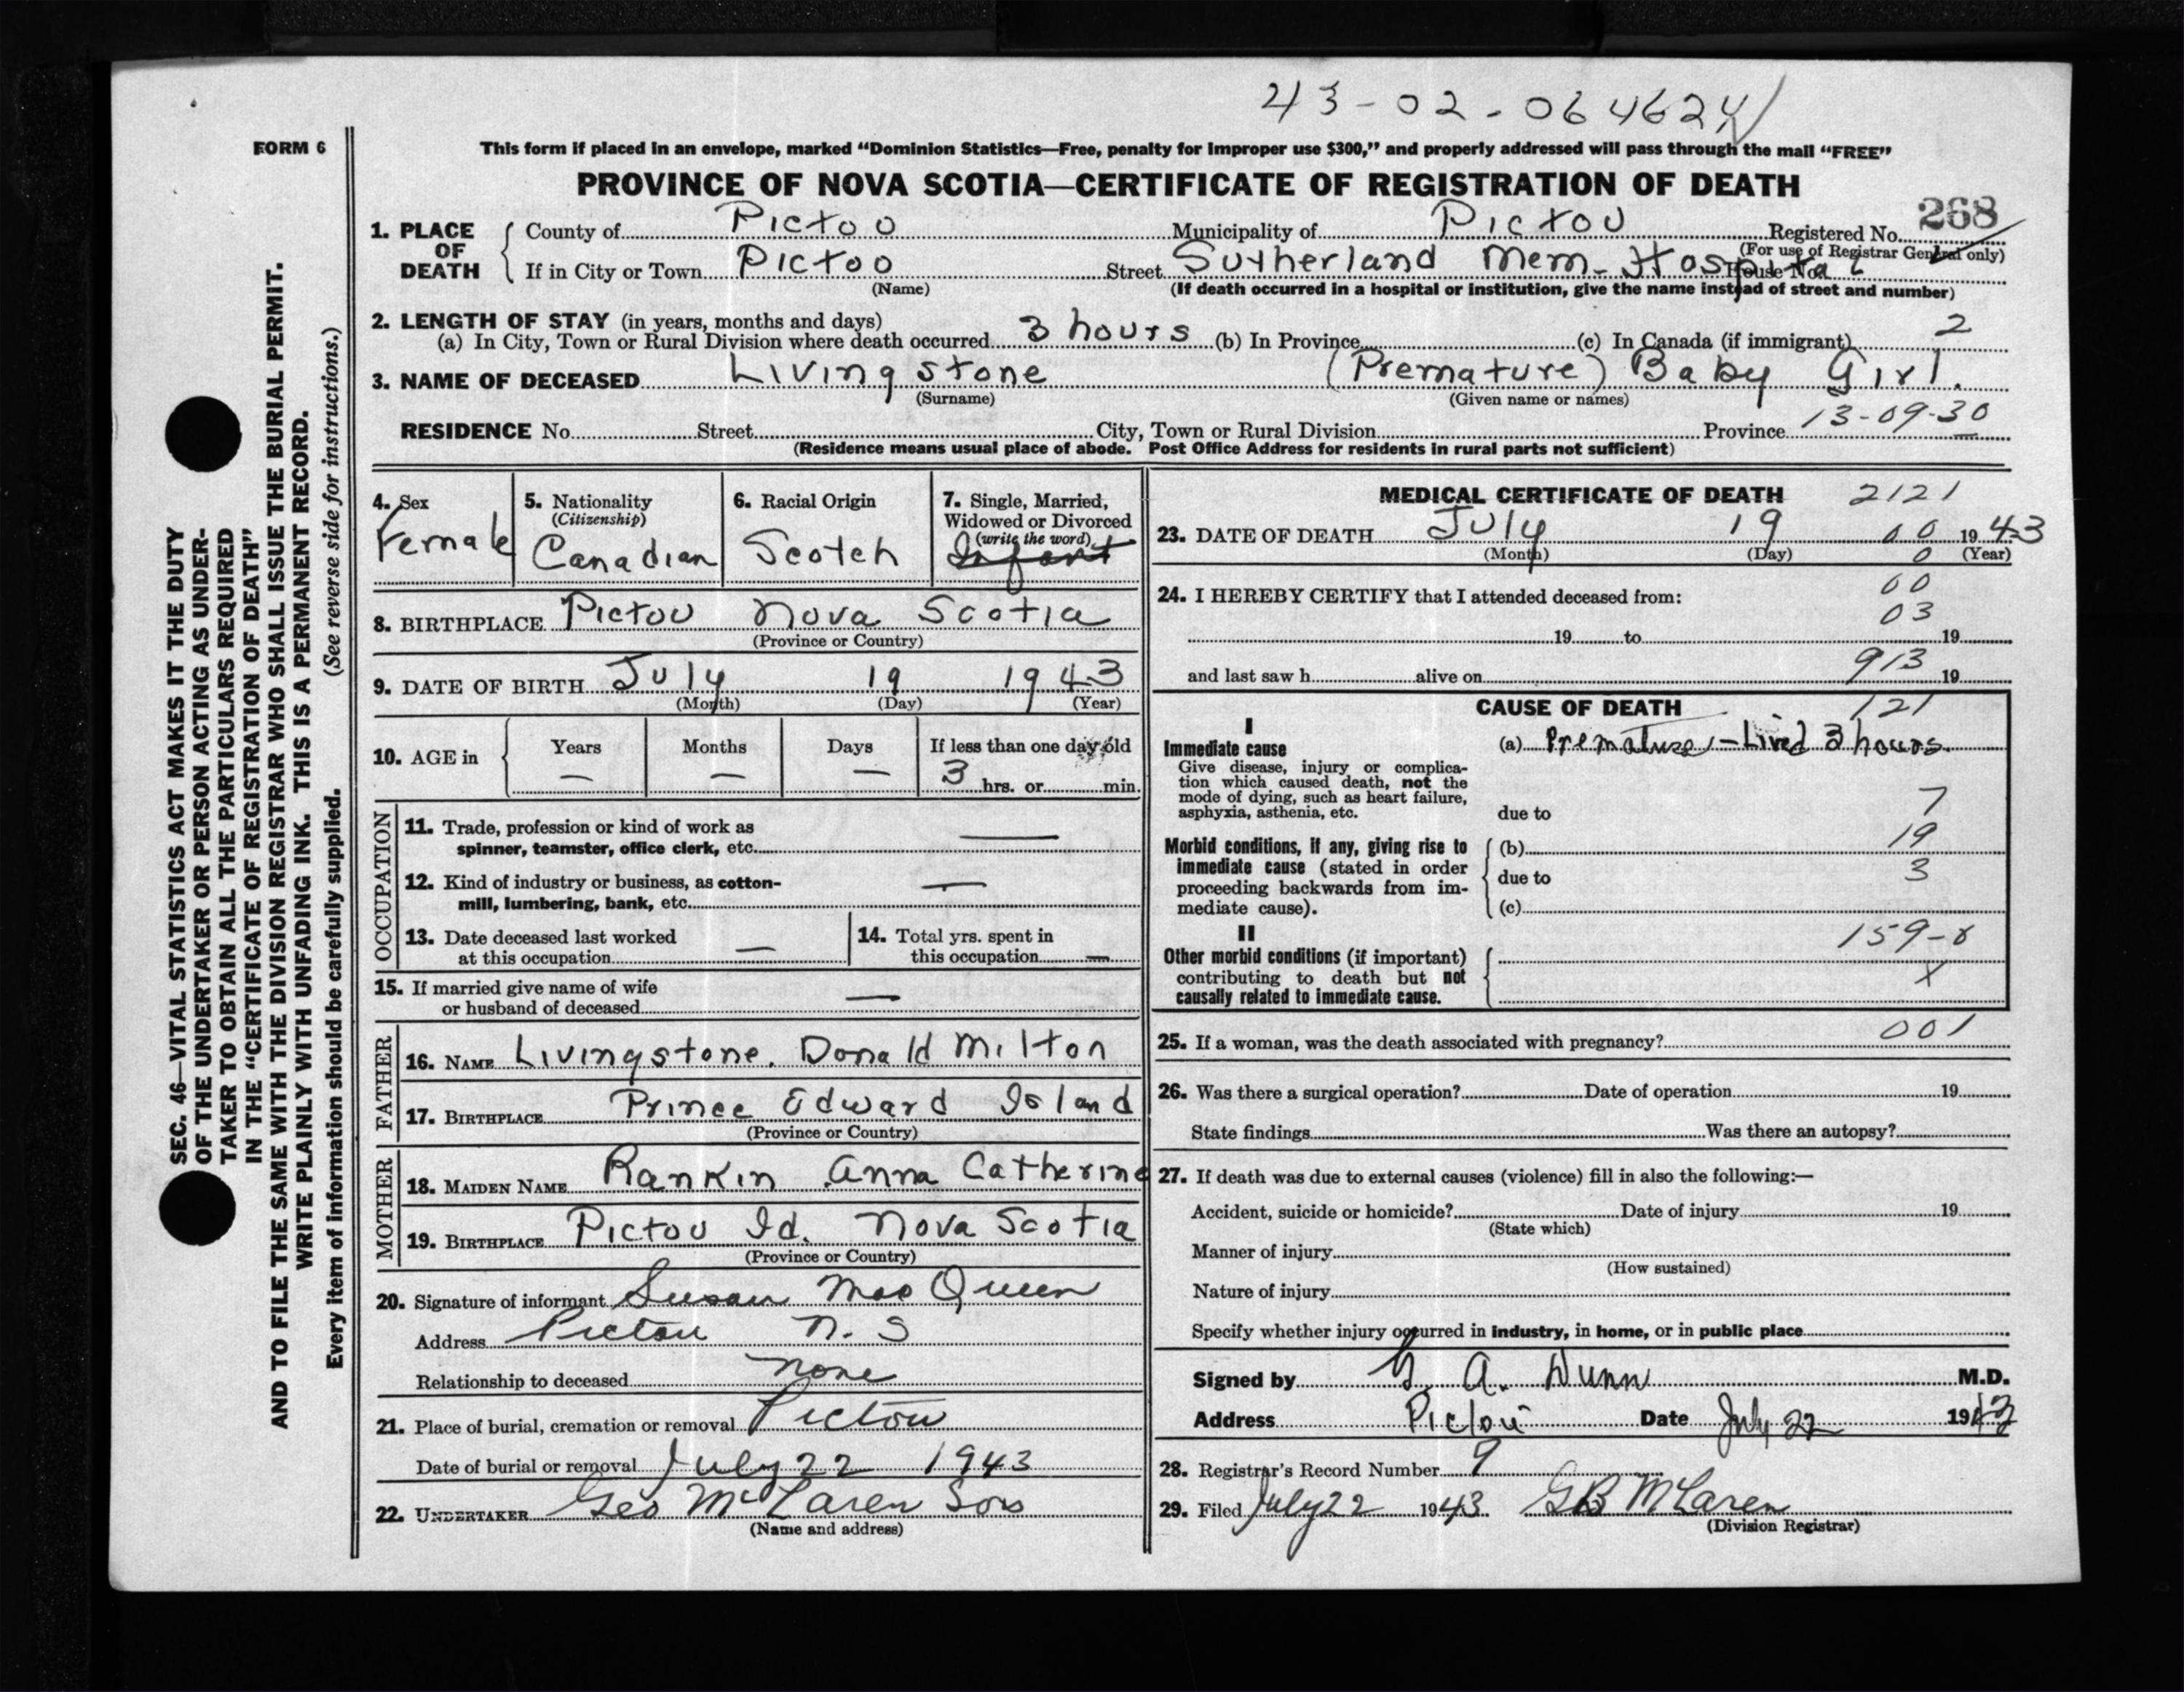 43-02-064624
FORM 6
This form if placed in an envelope, marked "Dominion Statistics—Free, penalty for improper use $300," and properly addressed will pass through the mail "FREE"
PROVINCE OF NOVA SCOTIA—CERTIFICATE OF REGISTRATION OF DEATH
268
1. PLACE OF DEATH
County of Pictou Municipality of Pictou Registered No.
(For use of Registrar General only)
If in City or Town Pictou Street Sutherland Mem. Hospital House No.
(Name) (If death occurred in a hospital or institution, give the name instead of street and number)
2. LENGTH OF STAY (in years, months and days)
(a) In City, Town or Rural Division where death occurred 3 hours (b) In Province (c) In Canada (if immigrant) 2
3. NAME OF DECEASED Livingstone (Premature) Baby Girl.
(Surname) (Given name or names)
13-09-30
RESIDENCE No. Street City, Town or Rural Division Province
(Residence means usual place of abode. Post Office Address for residents in rural parts not sufficient)
4. Sex
Female
5. Nationality
(Citizenship)
Canadian
6. Racial Origin
Scotch
7. Single, Married,
Widowed or Divorced
(write the word)
Infant
8. BIRTHPLACE Pictou Nova Scotia
(Province or Country)
9. DATE OF BIRTH July 19 1943
(Month) (Day) (Year)
10. AGE in
Years Months Days If less than one day old
— — — 3 hrs. or min.
OCCUPATION
11. Trade, profession or kind of work as
spinner, teamster, office clerk, etc. —
12. Kind of industry or business, as cotton-
mill, lumbering, bank, etc. —
13. Date deceased last worked
at this occupation —
14. Total yrs. spent in
this occupation —
15. If married give name of wife
or husband of deceased —
FATHER
16. NAME Livingstone. Donald Milton
17. BIRTHPLACE Prince Edward Island
(Province or Country)
MOTHER
18. MAIDEN NAME Rankin Anna Catherine
19. BIRTHPLACE Pictou Id. Nova Scotia
(Province or Country)
20. Signature of informant Susan MacQueen
Address Pictou N. S
Relationship to deceased none
21. Place of burial, cremation or removal Pictou
Date of burial or removal July 22 1943
22. UNDERTAKER Geo McLaren Sons
(Name and address)
MEDICAL CERTIFICATE OF DEATH 2121
23. DATE OF DEATH July 19 00 1943
(Month) (Day) 0 (Year)
00
24. I HEREBY CERTIFY that I attended deceased from:
03
19 to 19
913
and last saw h alive on 19
CAUSE OF DEATH 121
I
Immediate cause
Give disease, injury or complica-
tion which caused death, not the
mode of dying, such as heart failure,
asphyxia, asthenia, etc.
(a) Premature – Lived 3 hours.
7
due to
Morbid conditions, if any, giving rise to
immediate cause (stated in order
proceeding backwards from im-
mediate cause).
(b) 19
due to 3
(c)
II
Other morbid conditions (if important)
contributing to death but not
causally related to immediate cause.
159-8
X
25. If a woman, was the death associated with pregnancy? 001
26. Was there a surgical operation? Date of operation 19
State findings Was there an autopsy?
27. If death was due to external causes (violence) fill in also the following:—
Accident, suicide or homicide? Date of injury 19
(State which)
Manner of injury
(How sustained)
Nature of injury
Specify whether injury occurred in industry, in home, or in public place
Signed by G. A. Dunn M.D.
Address Pictou Date July 22 1943
28. Registrar's Record Number 9
29. Filed July 22 1943 GB McLaren
(Division Registrar)
SEC. 46—VITAL STATISTICS ACT MAKES IT THE DUTY
OF THE UNDERTAKER OR PERSON ACTING AS UNDER-
TAKER TO OBTAIN ALL THE PARTICULARS REQUIRED
IN THE "CERTIFICATE OF REGISTRATION OF DEATH"
AND TO FILE THE SAME WITH THE DIVISION REGISTRAR WHO SHALL ISSUE THE BURIAL PERMIT.
WRITE PLAINLY WITH UNFADING INK. THIS IS A PERMANENT RECORD.
Every item of information should be carefully supplied. (See reverse side for instructions.)